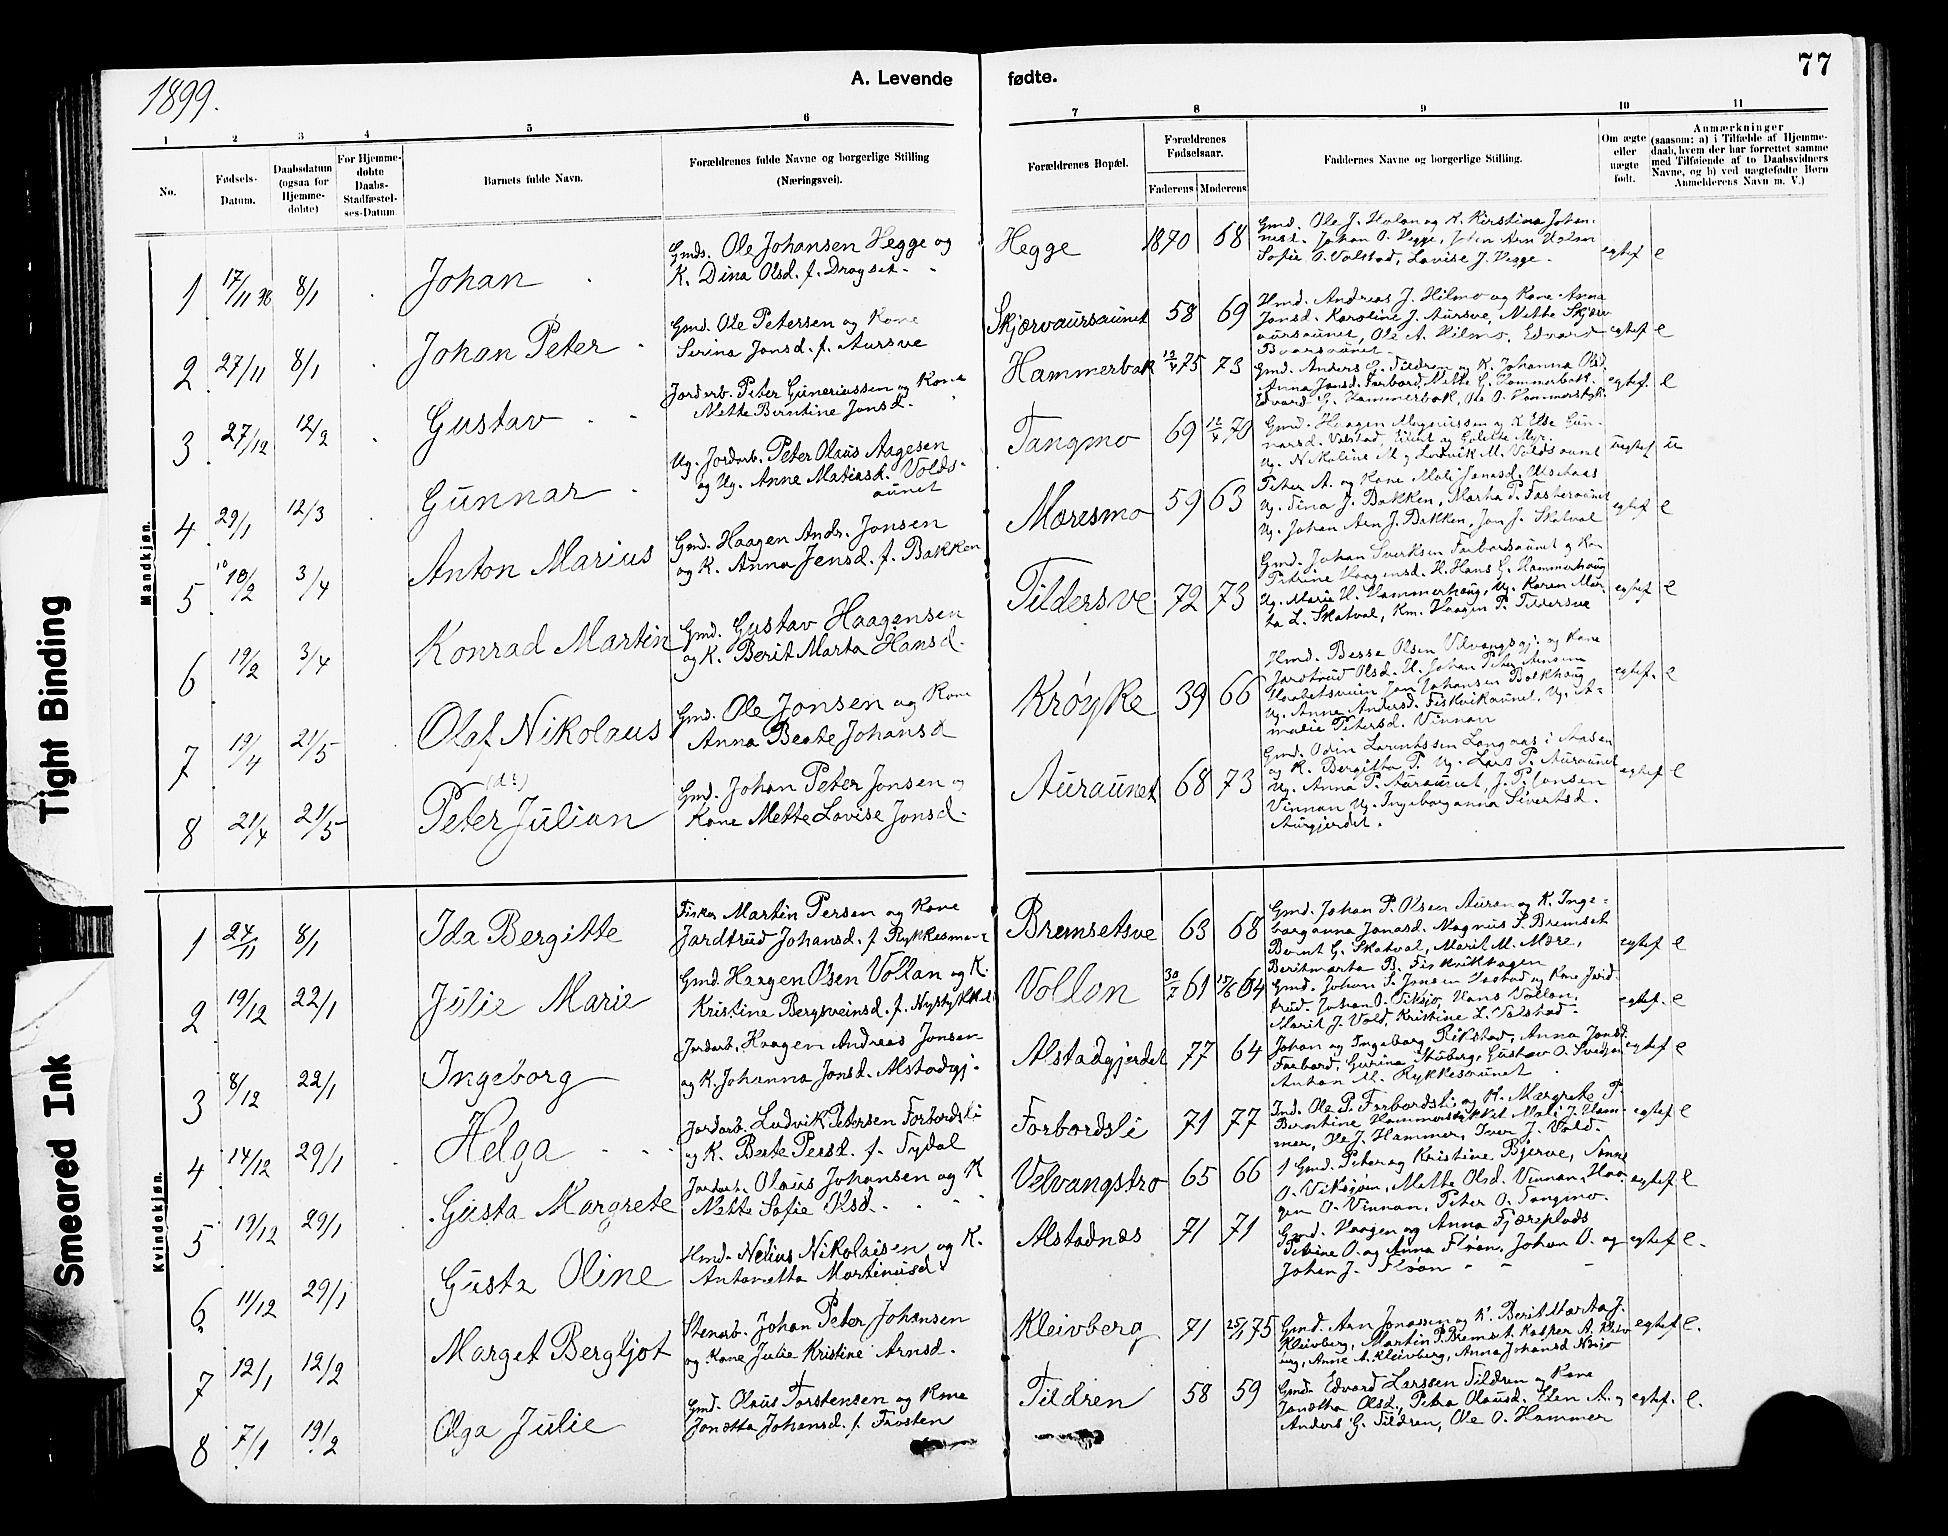 1899.
A. Levende
fødte.
77
1
2
3
4
5
6
7
8
9
10
11
No.
Fødsels-
Datum.
Daabsdatum
(ogsaa for
Hjemme-
døbte)
For Hjemme-
døbte
Daabs-
Stadfæstel-
ses-Datum
Barnets fulde Navn.
Forældrenes fulde Navne og borgerlige Stilling
(Næringsvei).
Forældrenes Bopæl.
Forældrenes
Fødselsaar.
Faderens
Moderens
Faddernes Navne og borgerlige Stilling.
Om ægte
eller
uægte
født.
Anmærkninger
(saasom: a) i Tilfælde af Hjemme-
daab, hvem der har forrettet samme
med Tilføiende af to Daabsvidners
Navne, og b) ved uægtefødte Børn
Anmelderens Navn m. V.)
Mandkjøn.
1 17/11 98 8/1 Johan
Gmd. Ole Johansen Hegge og
K. Dina Olsd. f. Dragset
Hegge 1870 68
Gmd. Ole J. Holan og K. Kirstina Johan-
nesd. Johan O. Hegge, John Arn Holan
Sofie O. Valstad, Lovise J. Hegge.
egtef e
2 27/11 8/1 Johan Peter
Gmd. Ole Petersen og Kone
Serina Jonsd. f. Aursve
Skjærvaursaunet 58 69
Hmd. Andreas J. Hilmo og Kone Anna
Jonsd. Karoline J. Aursve, Mette Skjærv
aursaunet, Ole A. Hilmo, Edvard
egtef e
3 27/12 12/2 Gustav
Jordarb. Peter Guneriussen og Kone
Mette Berntine Jonsd.
Hammerbak 75 73
Gmd. Anders G. Tildren og K. Johanna Olsd.
Anna Jonsd. Forbord, Mette G. Hammerbak.
Edvard G. Hammerbak, Ole O. Hammerstyk.
egtef. e
4 29/1 12/3 Gunnar
Ug. Jordarb. Peter Olaus Aagesen
og Ug. Anne Matiasd. Volds-
aunet
Tangmo 69 70
Gmd. Haagen Magnussen og K Else Gun-
narsd. Valstad, Eilert og Golette Myr.
Ug. Nikoline M og Ludvik M. Voldsaunet
uegtef u
5 10/2 3/4 Anton Marius
Gmd. Haagen Andr. Jonsen
og K. Anna Jensd. f. Bakken
Mæresmo 59 63
Peter A. og Kone Mali Jonasd.
Ug. Tina J. Bakken, Marta P. Fosberaunet
Ug. Johan Arn J. Bakken, Jon J. Skatval
egtef e
6 19/2 3/4 Konrad Martin
Gmd. Gustav Haagensen
og K. Berit Marta Hansd.
Tildersve 72 73
Gmd. Johan Sverksen Forbordsaunet og Kon
Petrine Haagensd. H. Hans G. Hammerhaug
Ug. Marie H. Hammerhaug, Ug. Karen Mar-
ta L. Skatval, Km. Haagen P. Tildersve
egtef e
7 19/4 21/5 Olaf Nikolaus
Gmd. Ole Jonsen og Kone
Anna Beate Johansd
Krøyke 39 66
Hmd. Besse Olsen Velvangsgj. og Kone
Jardtrud Olsd. H. Johan Peter Arnsen
Jon Johansen Bakhaug
Ug. Anne Andersd. Fiskvikaunet. Ug. A-
malie Petersd. Vinnan
egtef. e
8 21/4 21/5 Peter Julian
Gmd. Johan Peter Jonsen og
Kone Mette Lovise Jonsd.
Auraunet 68 73
Gmd. Odin Larentssen Langaas i Aasen
og K. Bergitta P. Ug. Lars P. Auraunet
Ug. Anna P. Auraunet, J. P. Jonsen
Vinnan Ug. Ingeboranna Sivertsd.
Aurgjerdet.
egtef e
Kvindekjøn.
1 24/11 8/1 Ida Bergitte
Fisker Martin Persen og Kone
Jardtrud Johansd. f Rykkesmo
Bremsetsve 63 68
Gmd. Johan P. Olsen Auran og K. Inge-
borganna Jonasd. Magnus P. Bremset
Bernt G. Skatval, Marit M. Mære,
Beritmarta B. Fiskvikhagen
egtef e
2 19/12 22/1 Julie Marie
Gmd. Haagen Olsen Vollan og K.
Kristine Bergsveinsd. f. Nystykket
Vollan 30/7 61 64
Gmd. Johan P. Jonsen Vestad og Kone Jard
trud. Johan O. Viksjø, Hans Vollan,
Marit J. Vold, Kristine L. Valstad
egtef. e
3 8/12 22/1 Ingeborg
Jordarb. Haagen Andreas Jonsen
og K. Johanna Jonsd. Alstadgj.
Alstadgjerdet 77 64
Johan og Ingeborg Rikstad, Anna Jonsd.
Forbord, Gurina Moberg, Gustav O. Svedjan
Anton M. Rykkesaunet
egtef e
4 14/12 29/1 Helga
Jordarb. Ludvik Petersen Forbordsli
og K. Berte Persd. f. Tydal
Forbordsli 71 77
Ind. Ole P. Forbordsli og K. Margrete P
Berntine Hammerstykket Mali J. Ham-
mer, Ole J. Hammer, Iver J. Vold.
egtef e
5 19/12 29/1 Gusta Margrete
Jordarb. Olaus Johansen og K
Mette Sofie Olsd.
Velvangstrø 65 66
Gmd. Peter og Kristine Bjerve, Anne
O. Viksjøen, Mette Olsd. Vinnan, Haa-
gen O. Vinnan, Peter O. Tangmo.
egtef e
6 11/12 29/1 Gusta Oline
Hmd. Nelius Nikolaisen og K.
Antonetta Martinusd
Alstadnæs 71 71
Gmd. Haagen og Anna Fjæreplads
Petrine O. og Anna Fløan, Johan O. og
Johan J. Fløan
egtef e.
7 12/1 12/2 Marget Bergljot
Stenarb. Johan Peter Johansen
og Kone Julie Kristine Arnsd.
Kleivberg 71 25/1 75
Gmd. Arn Jonassen og K. Berit Marta J.
Kleivberg, Martin P. Bremset, Kasper A. Kleiv
berg, Anne A. Kleivberg, Anna Johansd
egtef e.
8 7/1 19/2 Olga Julie
Gmd. Olaus Torstensen og Kone
Jonetta Johansd. f. Frosten
Tildren 58 59
Gmd. Edvard Larssen Tildren og Kone
Jonetta Olsd., Petra Olausd. Elen A. og
Anders G. Tildren, Ole O. Hammer
egtef. e.
Tight Binding
Smeared Ink